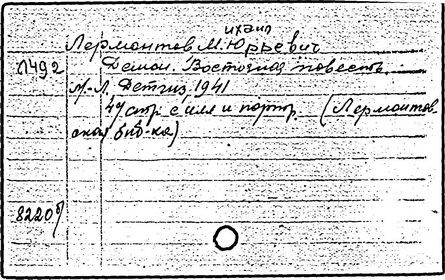 ихаил
Лермонтов М. Юрьевич
Л492 Демон. Восточная повесть.
М.-Л. Детгиз 1941
44 стр. с илл и портр (Лермонтов
ская биб-ка)
82206